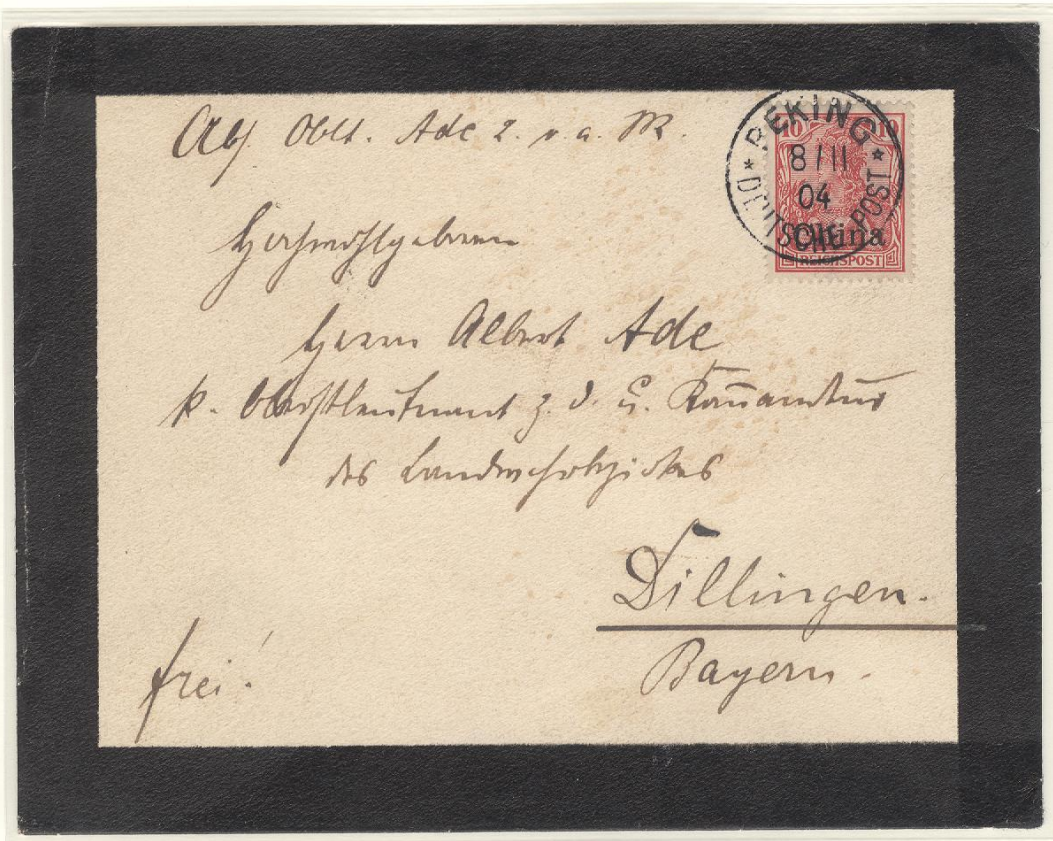 Abs. Oblt. Ade
PEKING
8/11
04
DEUTSCHE POST
10 10
China
REICHSPOST
Hochwohlgeboren
Herrn Albert Ade
k. Oberstleutnant z. D. u. Kom̄andeur
des Landwehrbezirkes
Dillingen.
Bayern.
frei!